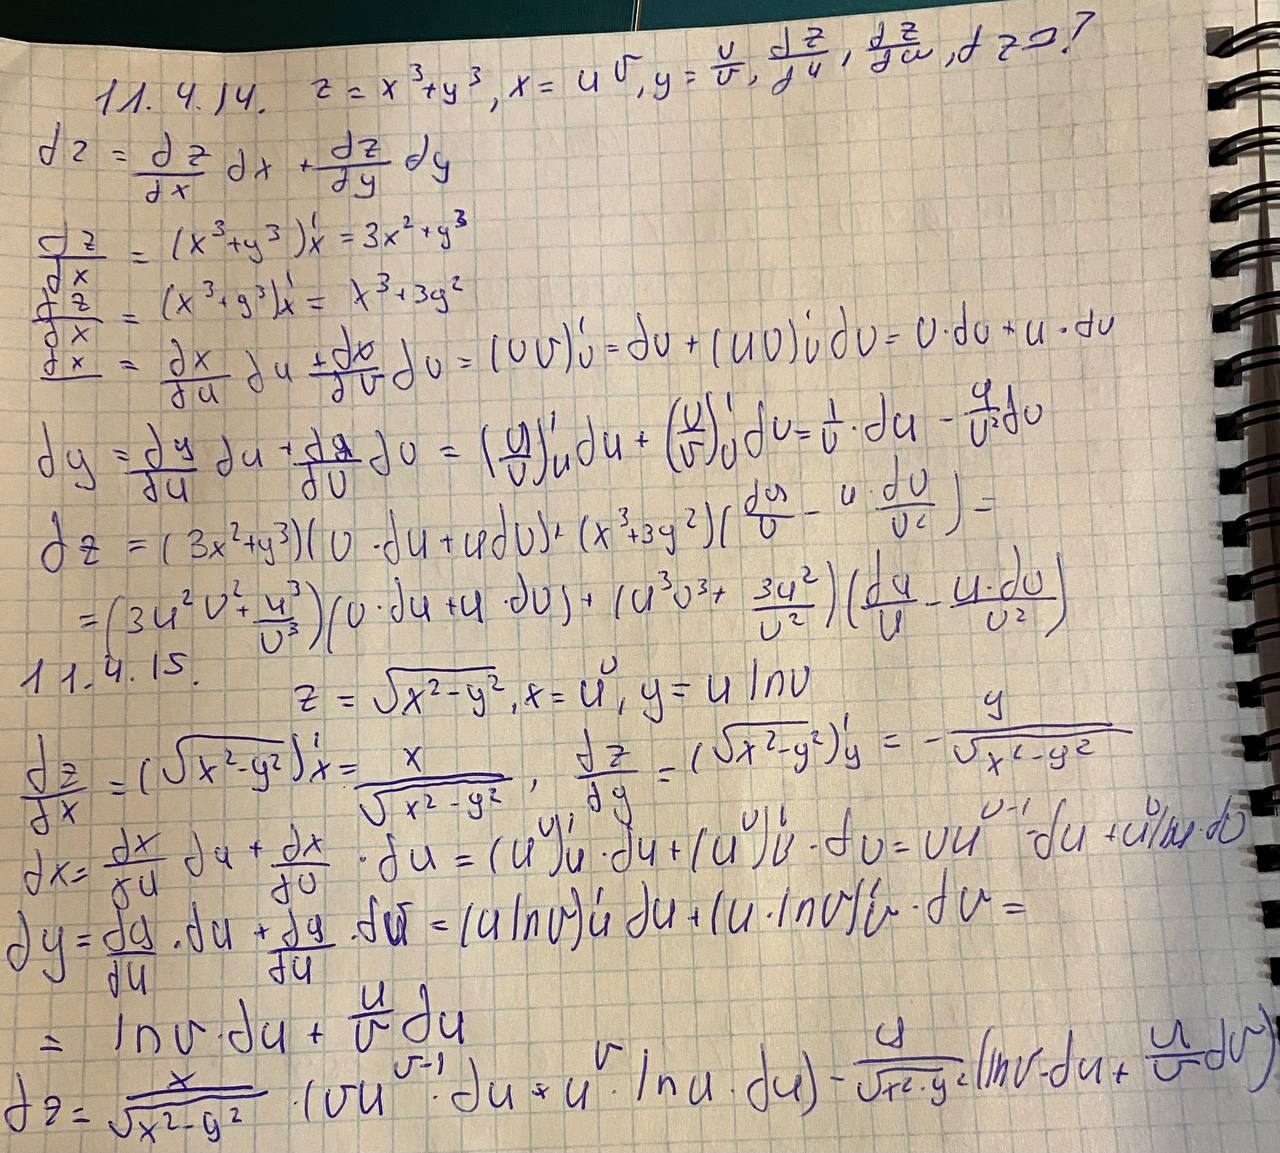 11.4.14. z = x³+y³, x = uv, y = u/v, dz/du, dz/dv, dz=?
dz = dz/dx dx + dz/dy dy
dz/dx = (x³+y³)'x = 3x²+y³
dz/dx = (x³+y³)'x = x³+3y²
dx = dx/du du + dx/dv dv = (uv)'u = du + (uv)'v dv = v·du + u·dv
dy = dy/du du + dy/dv dv = (u/v)'u du + (u/v)'v dv = 1/v·du - u/v² dv
dz = (3x²+y³)(v·du+udv)+(x³+3y²)(du/v - u·dv/v²) =
= (3u²v²+u³/v³)(v·du+u·dv)+(u³v³+3u²/v²)(du/v - u·dv/v²)
11.4.15.
z = √(x²-y²), x = u^v, y = u lnv
dz/dx = (√(x²-y²))'x = x/√(x²-y²), dz/dy = (√(x²-y²))'y = -y/√(x²-y²)
dx = dx/du du + dx/dv·du = (u^v)'u·du+(u^v)'v·dv = vu^(v-1)·du+u^v lnu·dv
dy = dy/du·du + dy/du·dv = (u lnv)'u du+(u·lnv)'v·dv =
= lnv·du + u/v du
dz = x/√(x²-y²)·(vu^(v-1)·du+u^v·lnu·du) - y/√(x²-y²)(lnv·du+u/v dv)